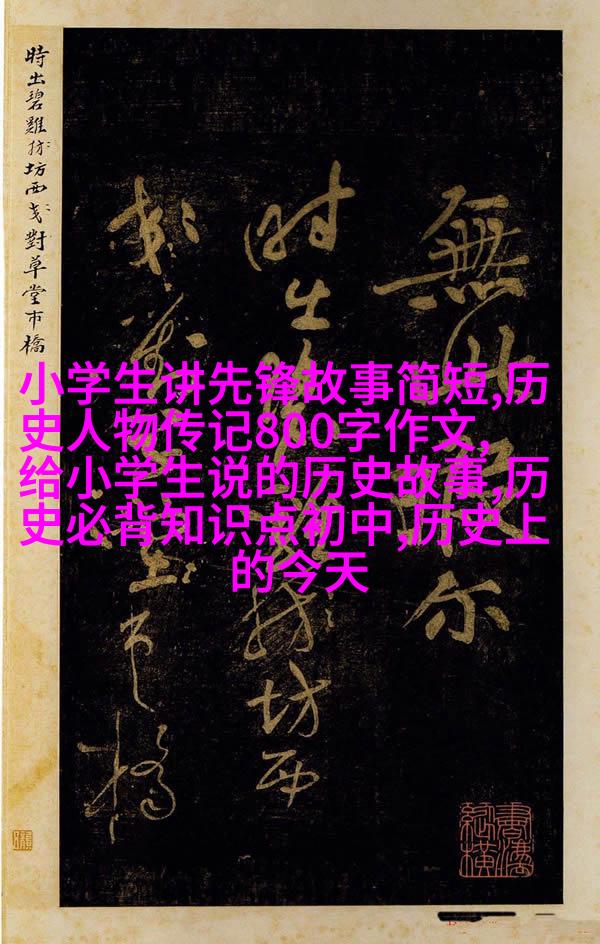 小学生讲先锋故事简短,历
史人物传记800字作文,
给小学生说的历史故事,历
史必背知识点初中,历史上
的今天
無此尔
時出坊西
市橋
時出碧雞坊西對草堂市橋